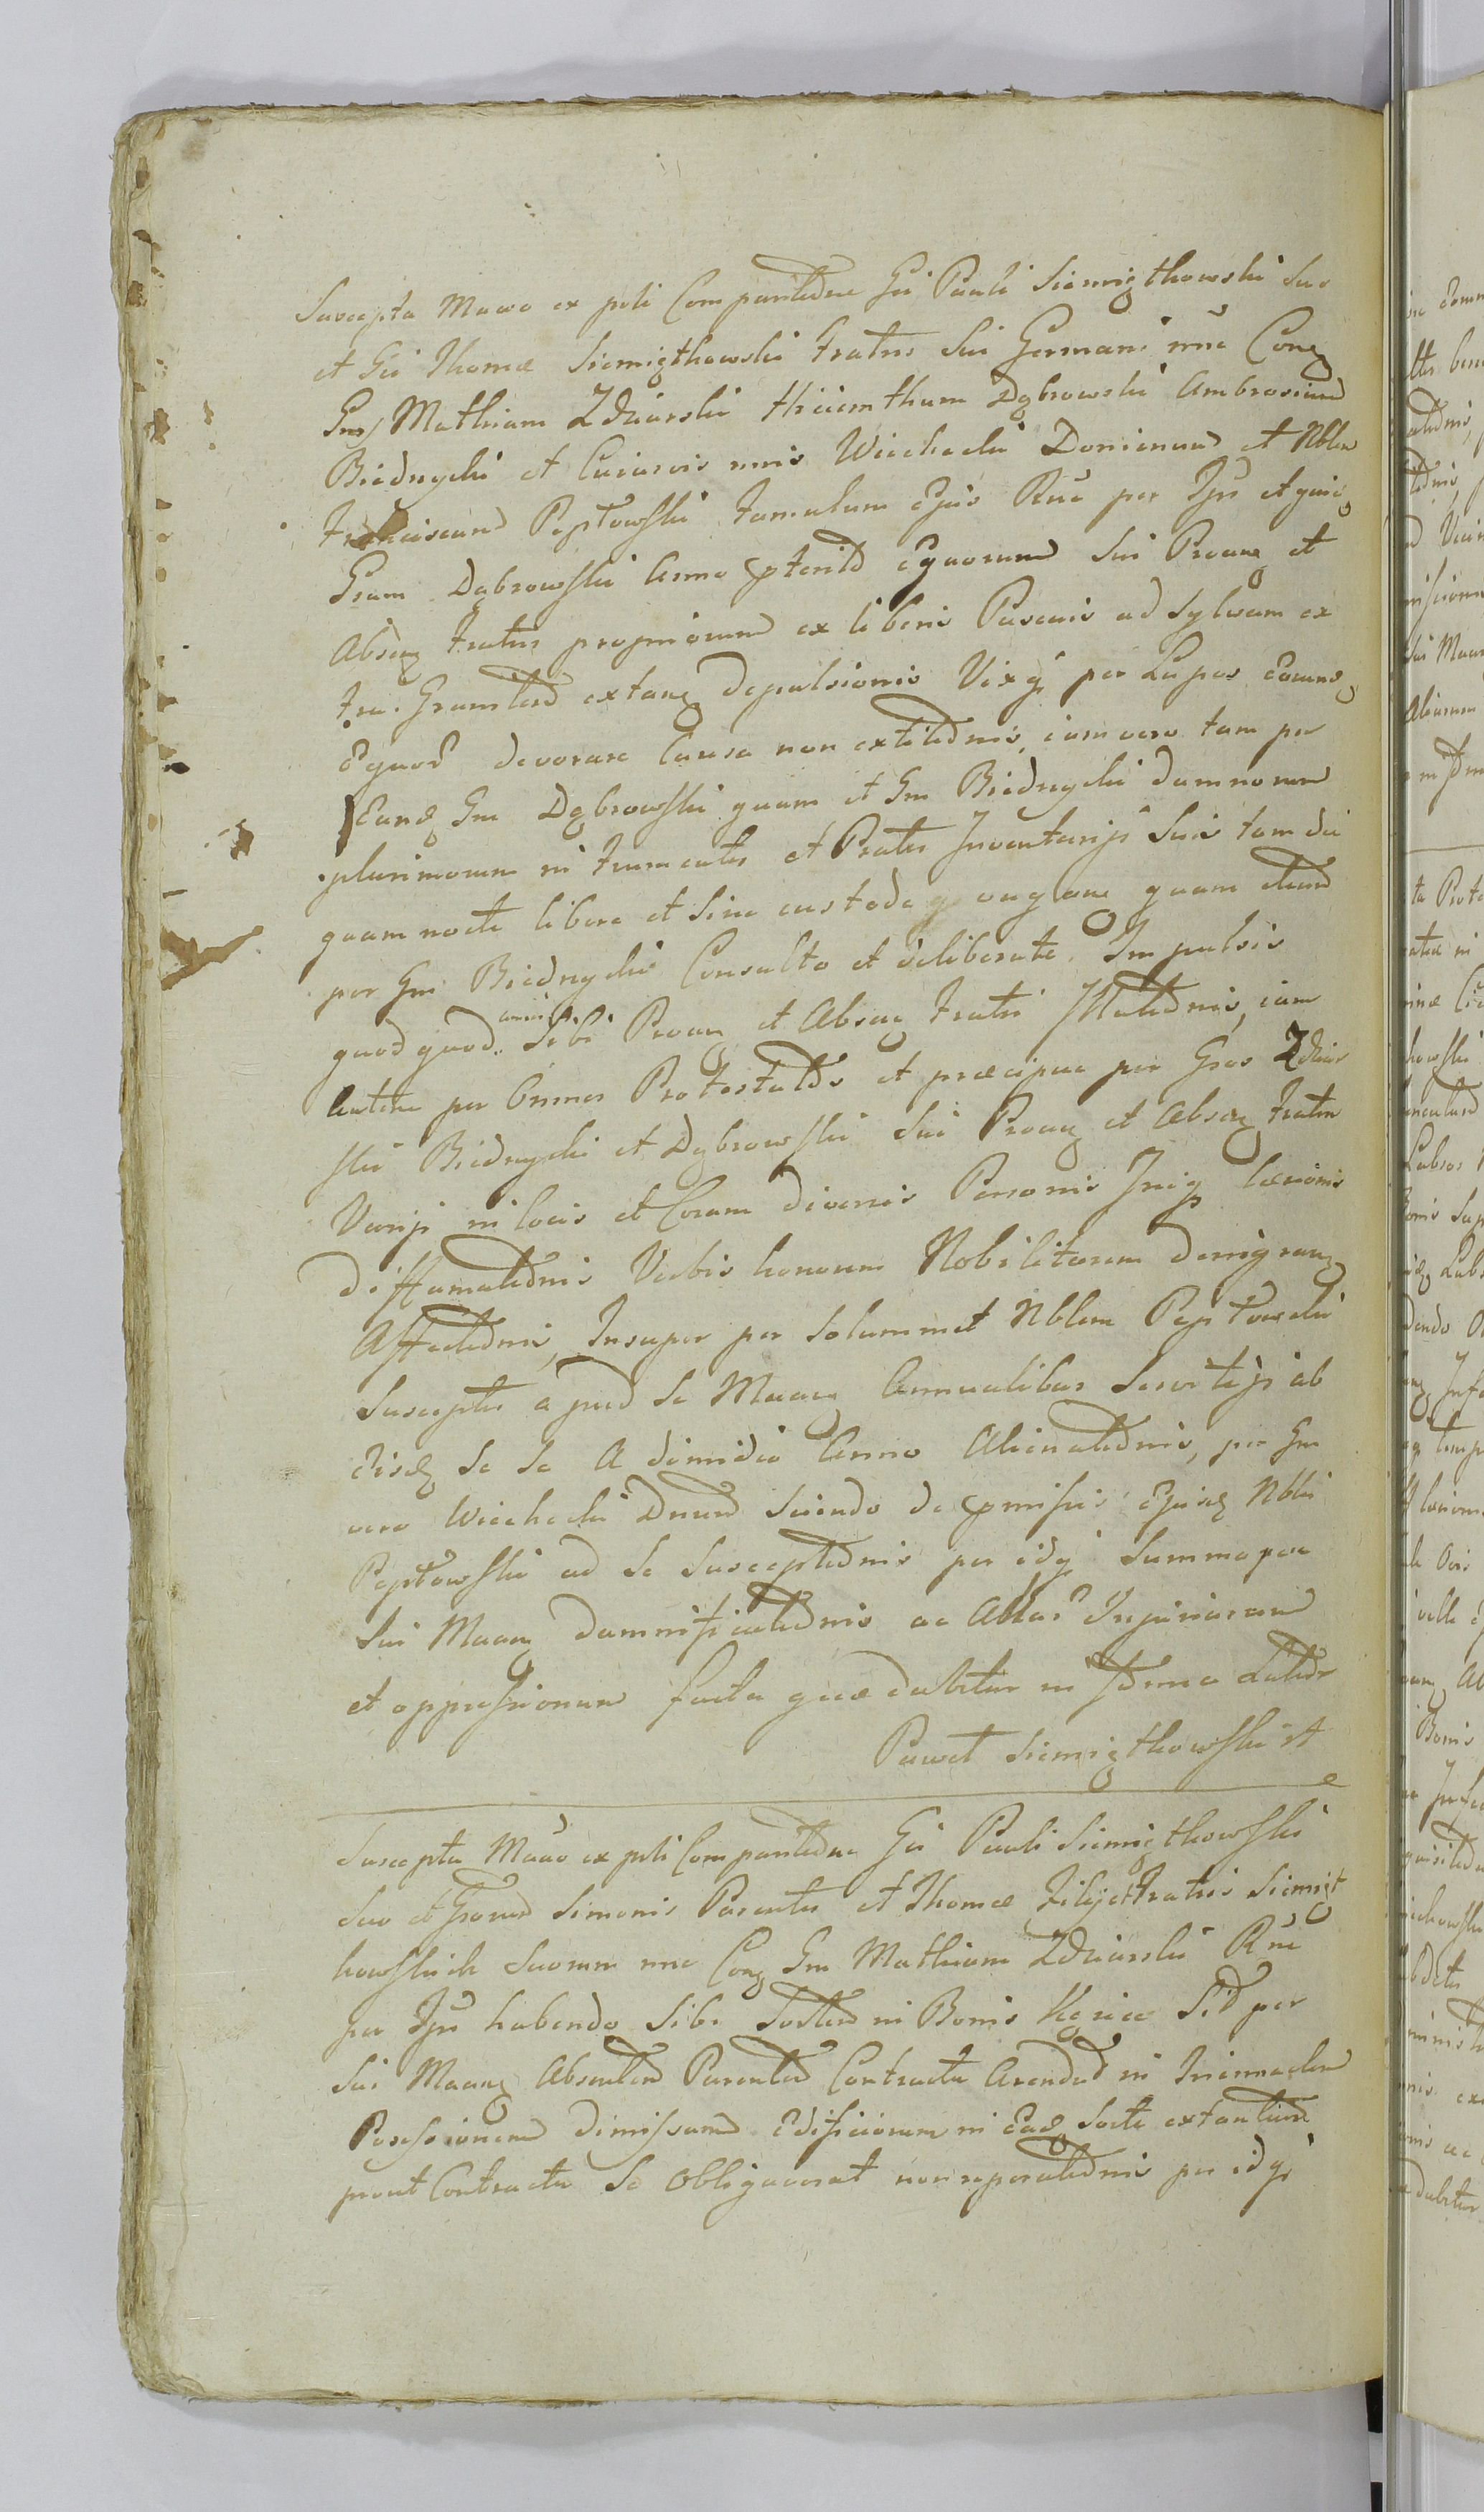 Suscepta Mwao ex psti Comparitione Gsi Pauli Siemigthowski Suo
et Gsi Thomæ Siemigthowski Fratris Sui Germani nne Conq
Gnos Mathiam Zdziarski Hiacinthum Dąbrowski Ambrosium
Biednycki et Cuiusvis nnis Wiechecki Dominum et Nblem
Franciscum Peptowski Famulum Ejus Rne per Ipm et quiq
Gnum Dąbrowski Anno pterito Equorum Sui Prouq et
Absenq Fratris propriorum ex liberis Pascuis ad Sylvam ex
tra Granities extanq depulsionis Vixq per Lupos eorunq
Equor devorare Causa non extitionis, iam vero tam per
Eunq Gnu Dąbrowski quam et Gnu Biednycki damnorum
plurimorum in Frumentis et Pratis Inventarijs Suis tam die
quam nocte libere et Sine custode quam etiam
per Gnu Biednycki Consulto et deliberate Impulsis
quod quod Sibi Prouq et Absenq Fratri Illationis, iam
autem per Omnes Protestatos et præcipue per Gnos Zdziar
ski Biednycki et Dąbrowski Sui Prouq et Absenq Fratris
Varijs in locis et Coram diversis Personis Iniq læsionis
diffamationis Verbis honorem Nobilitarem denigranq
Affectionis, Insuper per Solummet Nblem Peptowski
Susceptis apud Se Mwanq Annualibus Servitijs ab
Eisq Se Se A dimidio Anno Alienationis, per Gnu
vero Wiechecki Dnum Sciendo de pmissis Ejusq Nblis
Peptowski ad Se Susceptionis per idq Summopere
Sui Mwanq damnificationis ac Aliar Injuriarum
et oppressionum facta quæ dabitur in forma Latior
Paweł Siemigthowski mp
Suscepta Mwao ex psti Comparitione Gsi Pauli Siemigthowski
Suo et Gnorum Simonis Parentis et Thomæ Filij et Fratris Siemigt
howskich Suorum nne Conq Gnu Mathiam Zdziarski Rne
per Ipm habendo Sibi Sortem in Bonis Sit per
Sui Mwanq Absentem Parentem Contractu Arendæ in Triennalem
Possessionem dimissam Edificiorum in Eadq Sorte extantium
prout Contractu Se Obligaverat non reparationis per idq